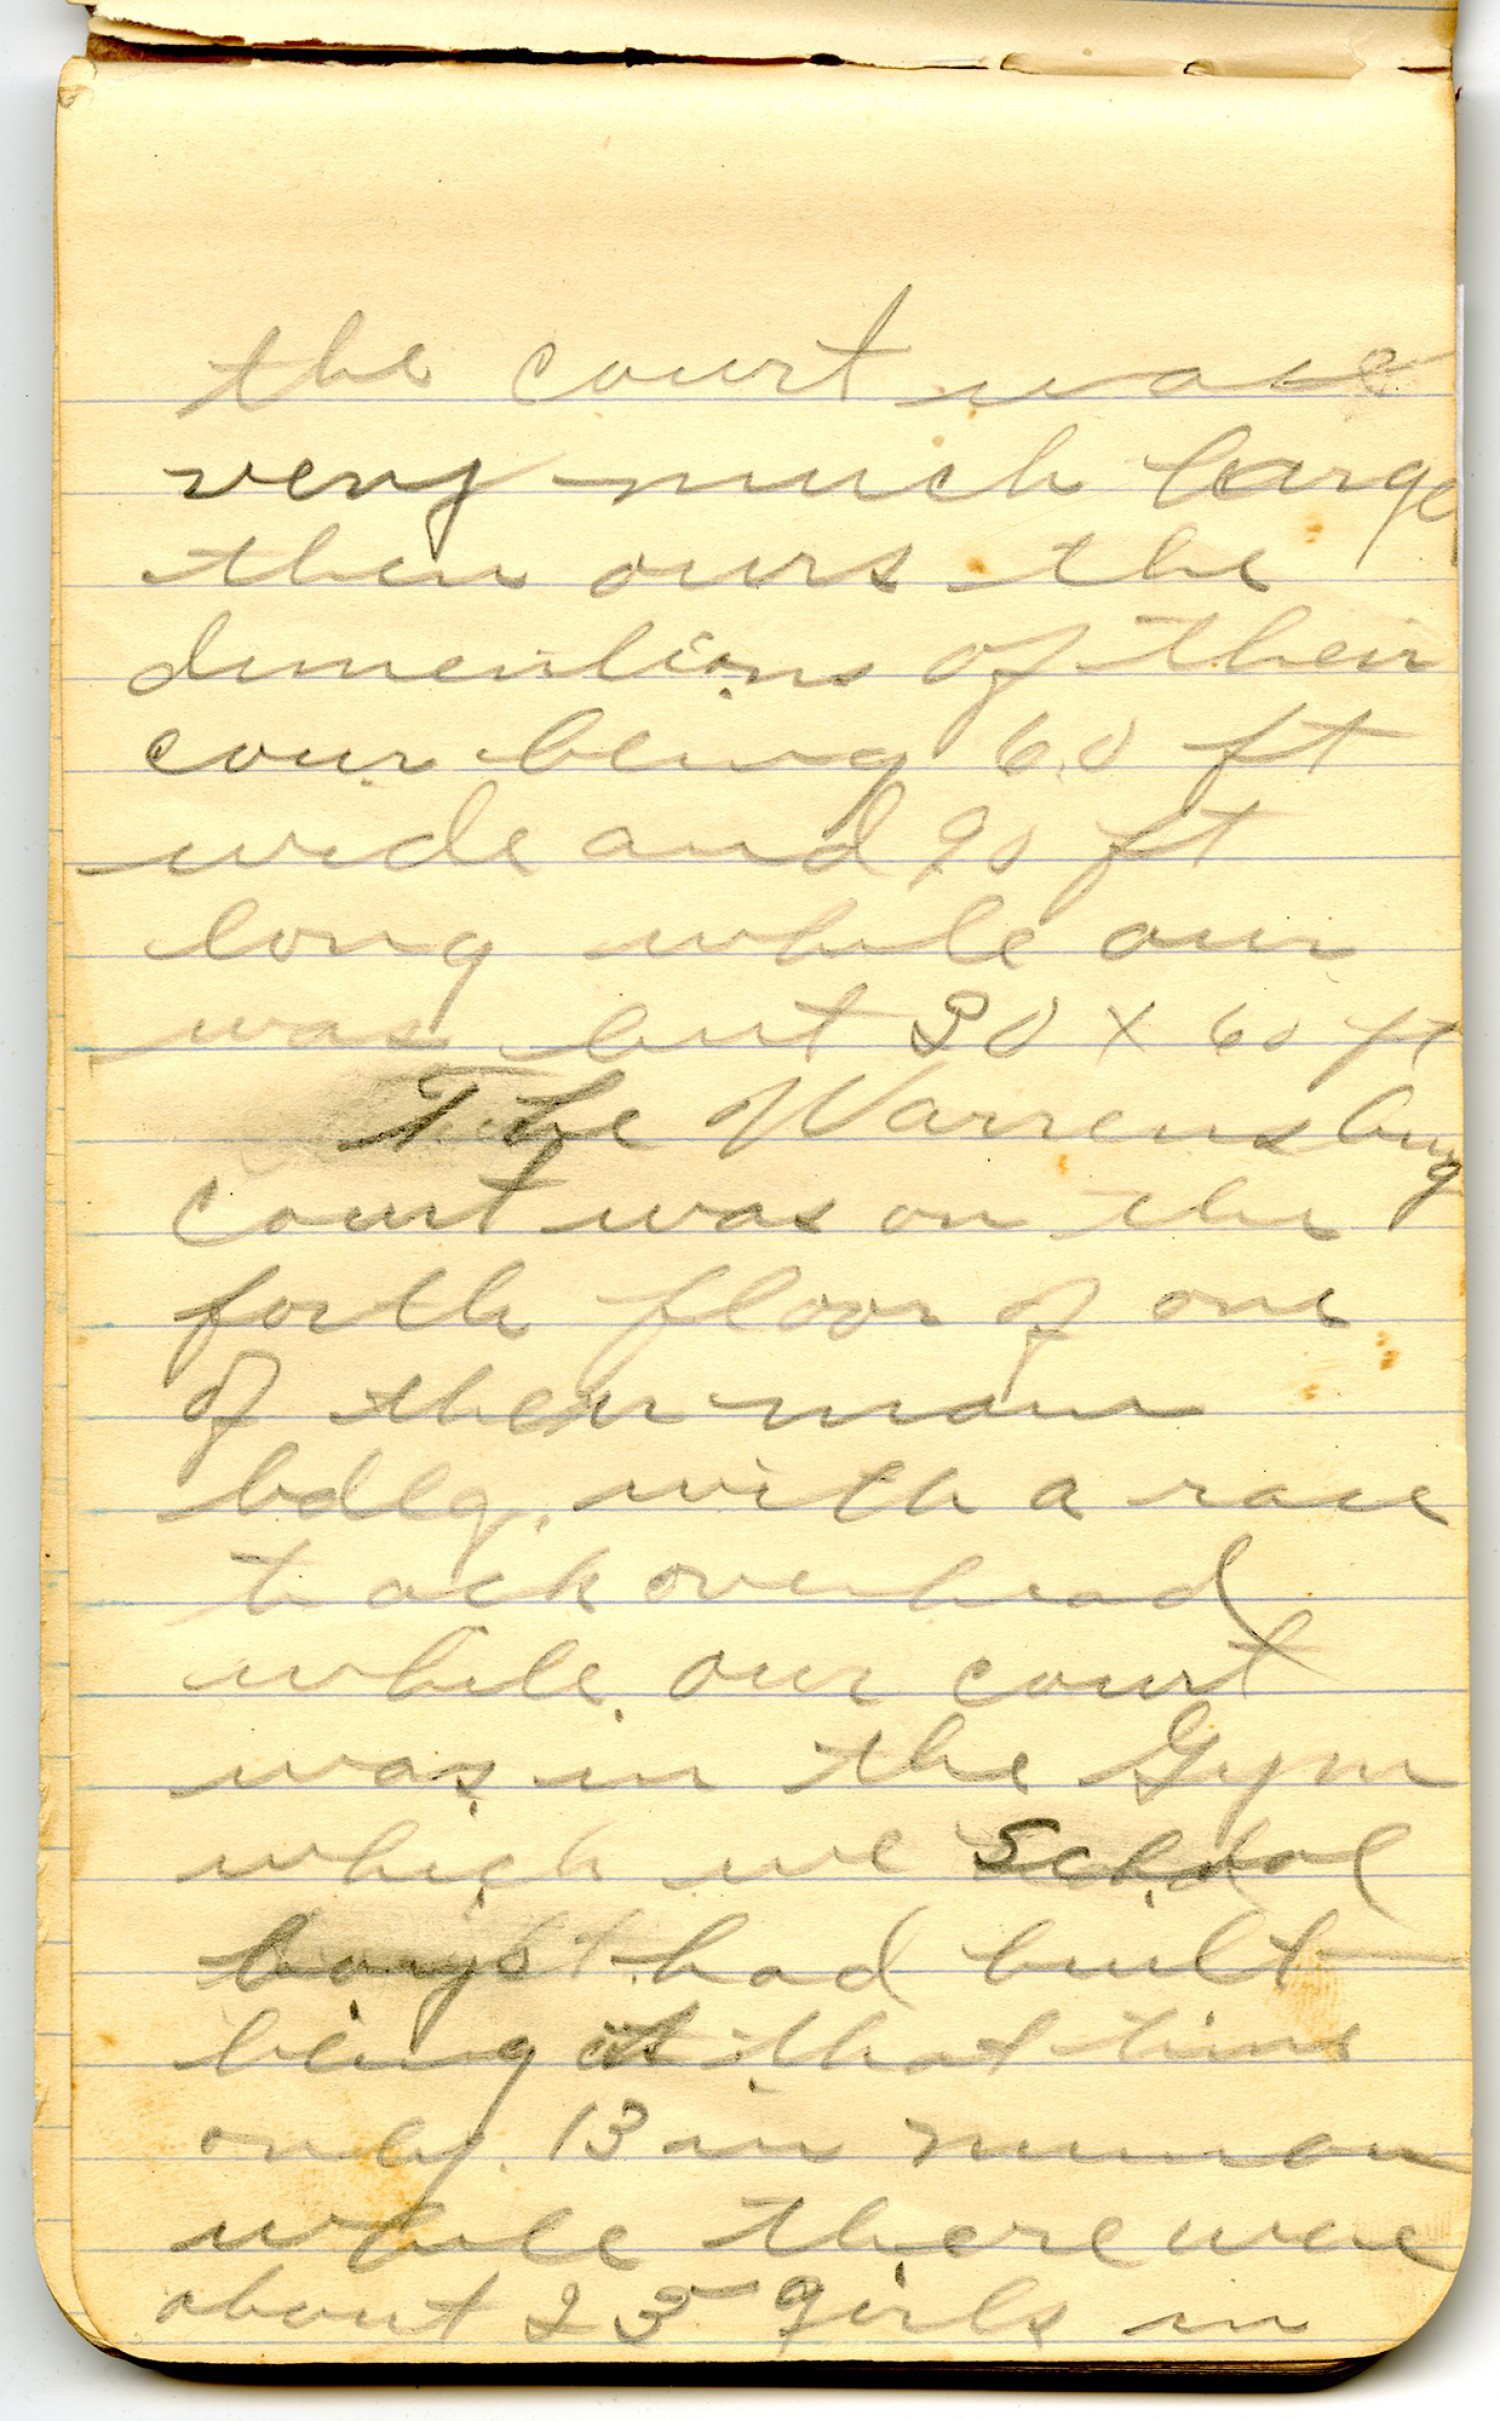 the court was
very much large
then ours the
dimentions of their
cour being 60 ft
wide and 90 ft
long while our
was but 30 x 60 ft
The Warrensburg
Court was on the
forth floor of one
of their main
bdlg. with a race
track overhead
while our court
was in the Gym
which we School
boys had built
being at that time
only 13 in
while there were
about 25 girls in